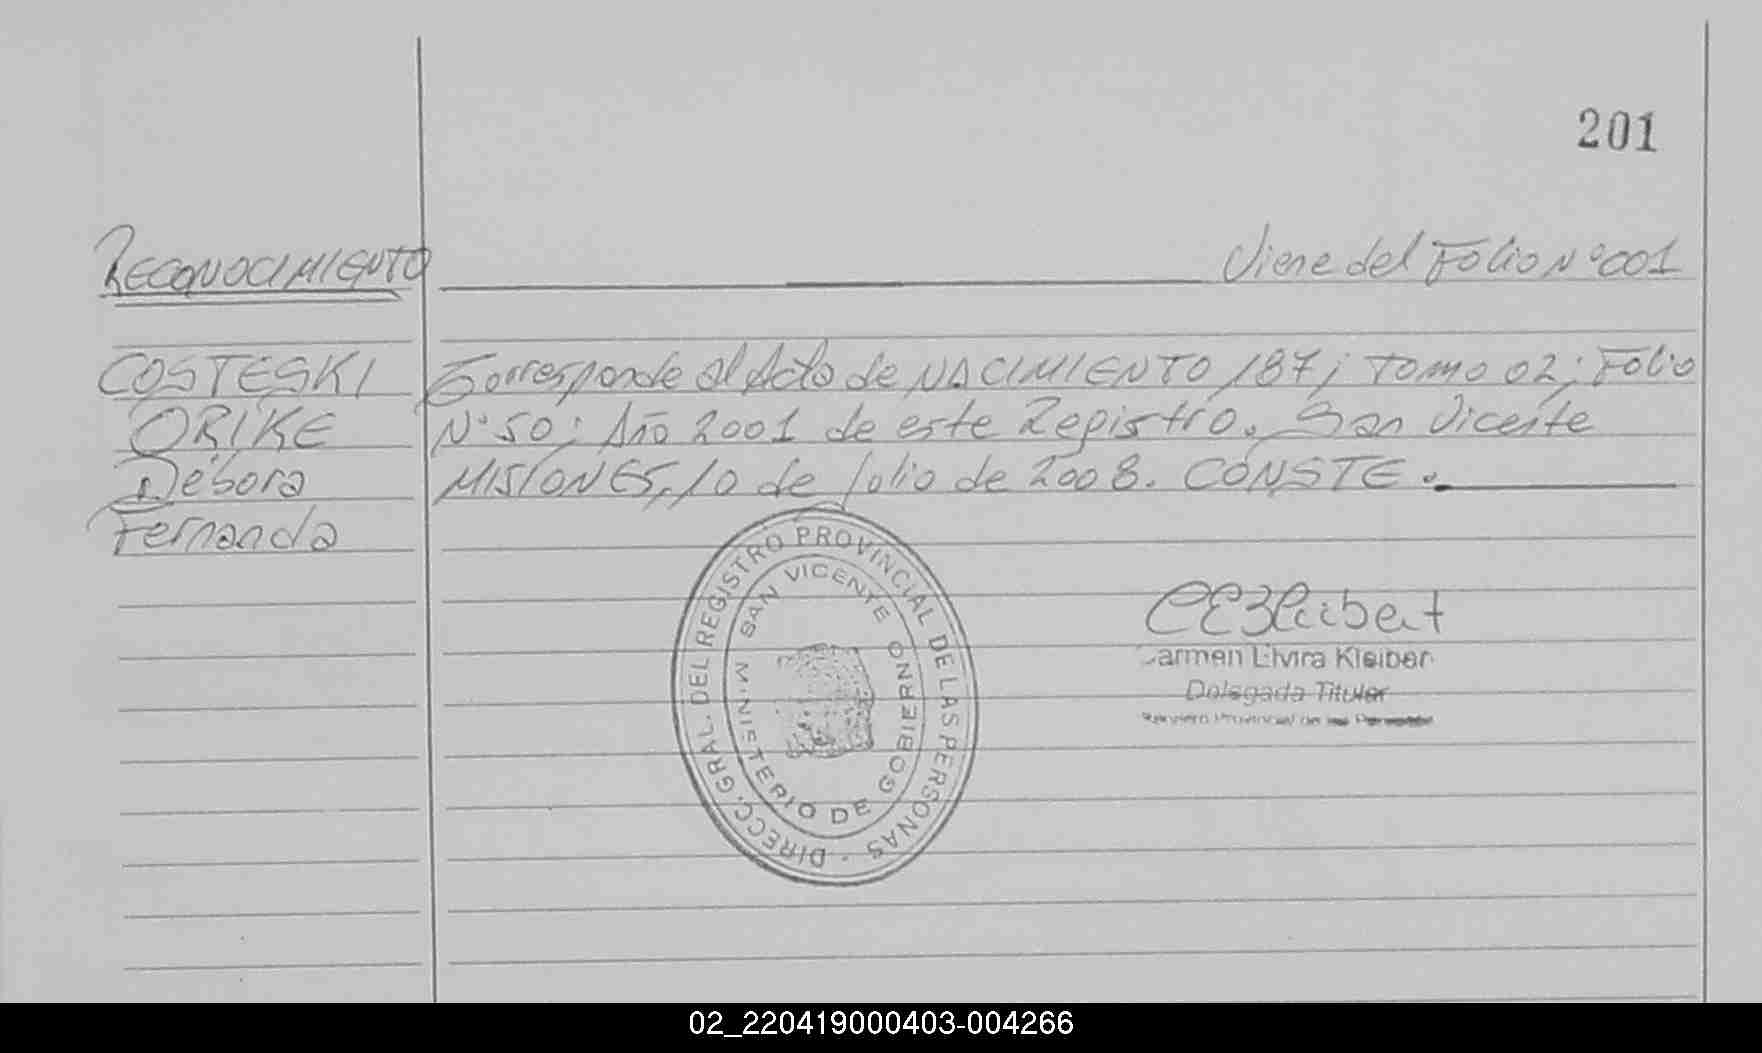 201
RECONOCIMIENTO Viene del Folio Nº001
COSTESKI Corresponde al Acta de NACIMIENTO 187; Tomo 02; Folio
ORIKE Nº 50; Año 2001 de este Registro. San Vicente
Débora MISIONES, 10 de Julio de 2008. CONSTE.
Fernanda
DIRECC. GRAL. DEL REGISTRO PROVINCIAL DE LAS PERSONAS
SAN VICENTE
MINISTERIO DE GOBIERNO
Carmen Elvira Kleiber
Delegada Titular
Registro Provincial de las Personas
02_220419000403-004266